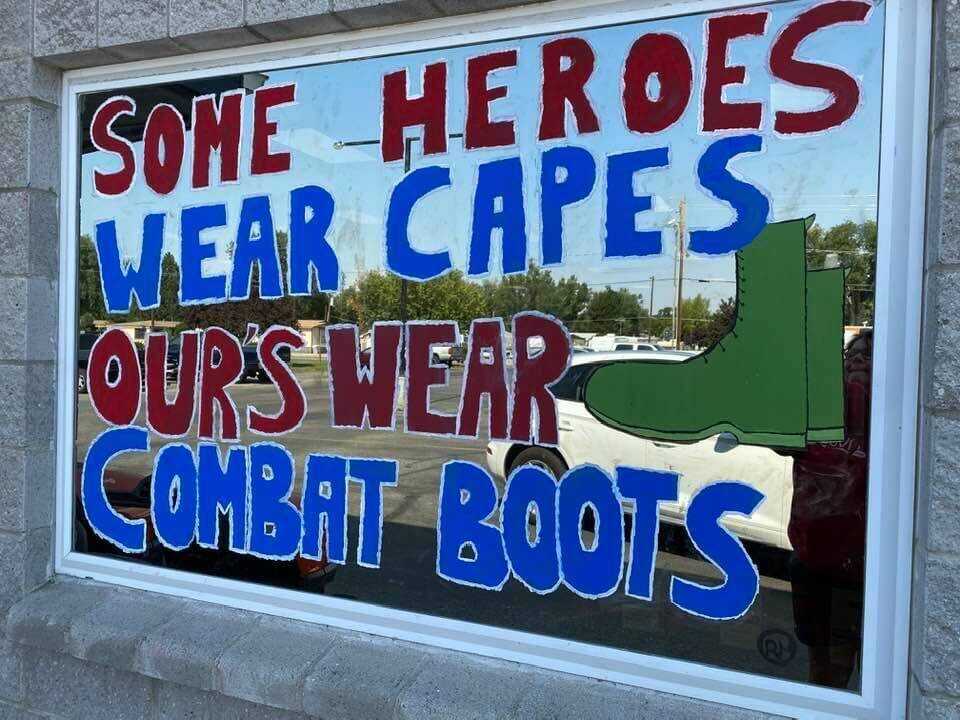 SOME HEROES
WEAR CAPES
OUR'S WEAR
COMBAT BOOTS
RH